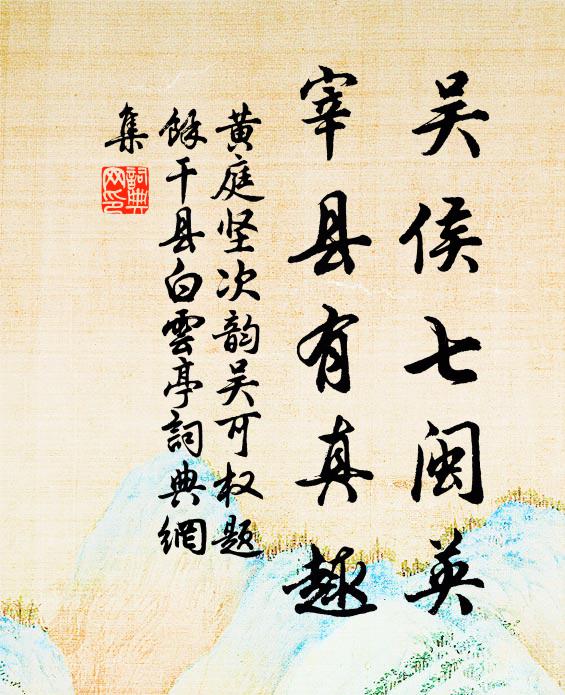 吴侯七闽英
宰县有真趣
黄庭坚次韵吴可权题
馀干县白雲亭詞典網
集
詞典网印